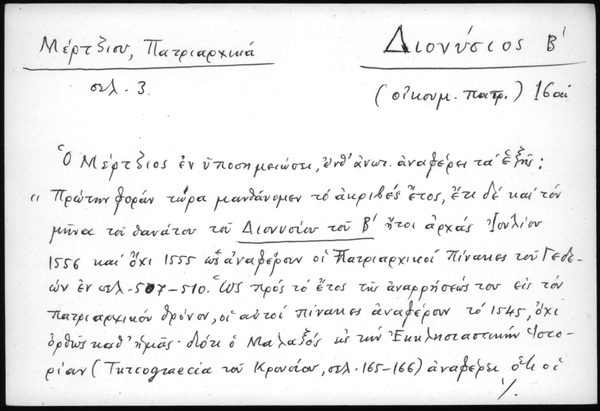 Μέρτζιου, Πατριαρχικά
Διονύσιος Β'
σελ. 3.
(οἰκουμ. πατρ.) 16 αἰ
Ὁ Μέρτζιος ἐν ὑποσημειώσει, ἔνθ' ἀνωτ. ἀναφέρει τὰ ἑξῆς:
" Πρώτην φορὰν τώρα μανθάνομεν τὸ ἀκριβὲς ἔτος, ἔτι δὲ καὶ τὸν
μῆνα τοῦ θανάτου τοῦ Διονυσίου τοῦ Β' ἤτοι ἀρχὰς Ἰουλίου
1556 καὶ ὄχι 1555 ὡς ἀναφέρουν οἱ Πατριαρχικοὶ Πίνακες τοῦ Γεδε-
ών ἐν σελ. 507-510. Ὡς πρὸς τὸ ἔτος τῆς ἀναρρήσεώς του εἰς τὸν
πατριαρχικὸν θρόνον, οἱ αὐτοὶ πίνακες ἀναφέρουν τὸ 1545, ὄχι
ὀρθῶς καθ' ἡμᾶς· διότι ὁ Μαλαξὸς εἰς τὴν Ἐκκλησιαστικὴν Ἱστο-
ρίαν (Turcograecia τοῦ Κρουσίου, σελ. 165-166) ἀναφέρει ὅτι οἱ
./.